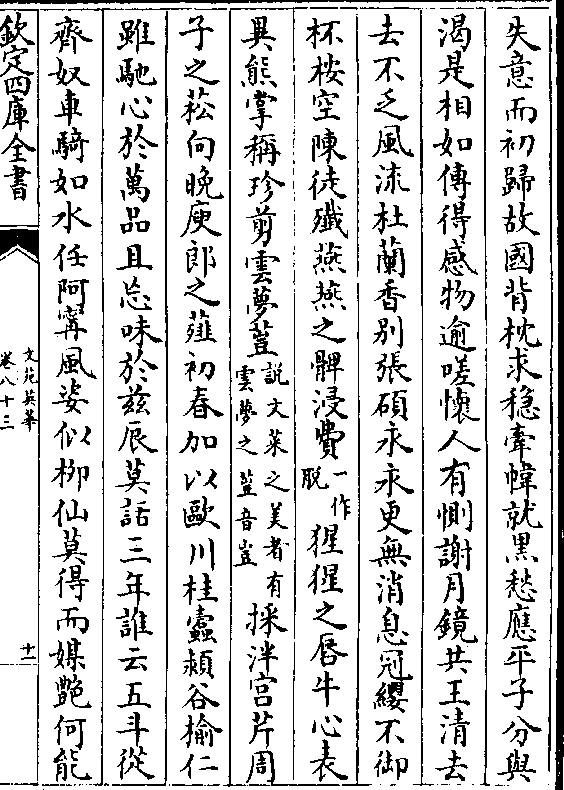 失意而初歸故國背枕求穏牽幃就黒愁應平子分與
渴是相如傳得感物逾嗟懷人有惻謝月鏡共王清去
去不乏風流杜蘭香別張碩永永更無消息冠纓不御
杯桉空陳徒殱燕燕之髀浸費一作脱猩猩之唇牛心表
異熊掌稱珍剪雲夢䔇説文菜之美者有雲夢之䔇音豈採泮宫芹周
子之菘向晚庾郎之薤初春加以歐川桂蠧潁谷榆仁
雖馳心於萬品且忘味於兹辰莫話三年誰云五斗從
齊奴車騎如水任阿甯風姿似柳仙莫得而媒艶何能
欽定四庫全書
文苑英華
卷八十三
十一